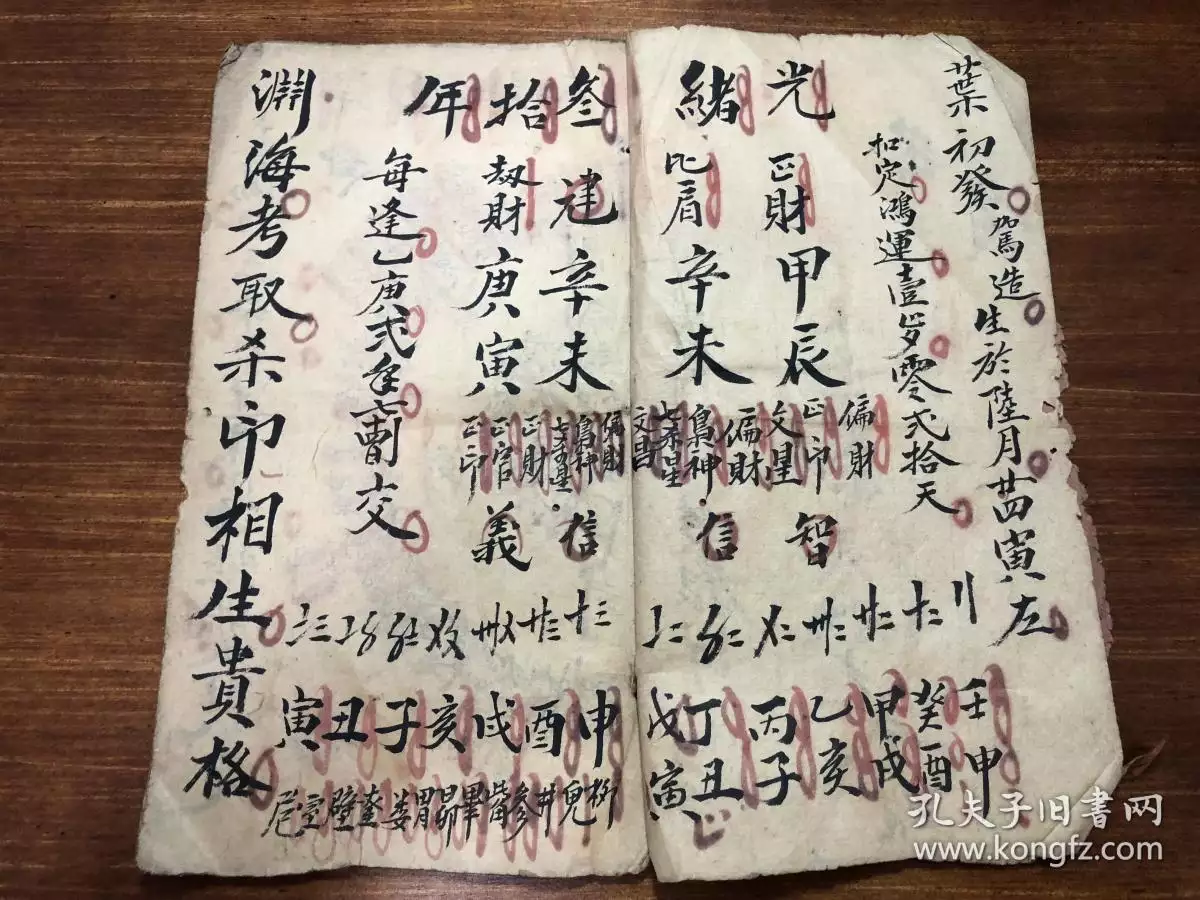 葉初發駕造生於陸月廿四寅左
扣定鴻運壹岁零弍拾天
光緒叁拾年
正財甲辰
偏財
正印
文星
智
比肩辛未
偏財
梟神
七杀星
文昌
信
建辛未
偏財
梟神
七杀星
信
劫財庚寅
正財
正官
正印
義
每逢乙庚弍年七暫交
淵海考取杀印相生貴格
壬申
癸酉
甲戌
乙亥
丙子
丁丑
戊寅
申
酉
戌
亥
子
丑
寅
柳
井
參
觜
畢
昴
胃
婁
奎
壁
孔夫子旧书网
www.kongfz.com